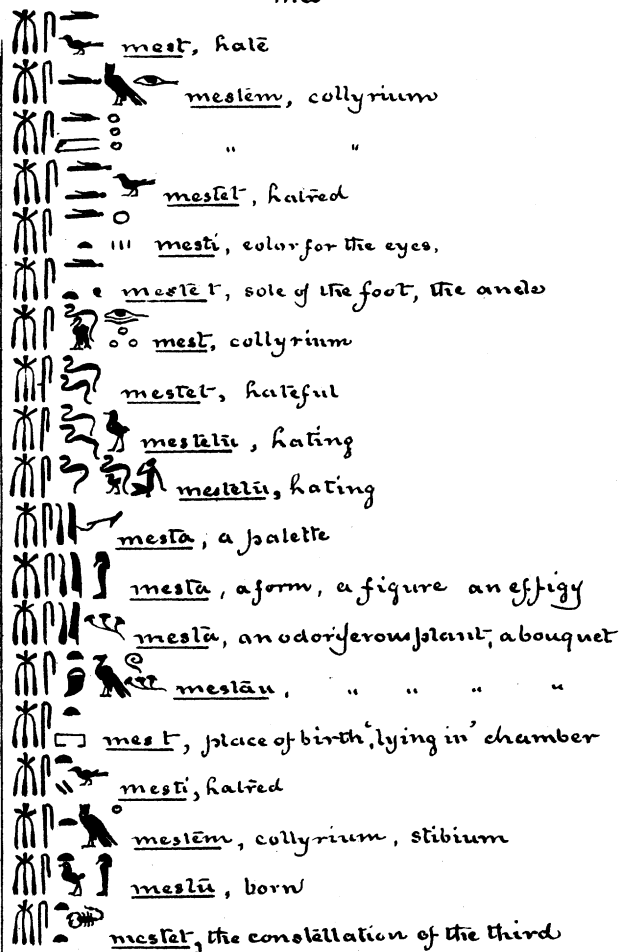 mest, hate
mestem, collyrium
" "
mestet, hatred
mesti, color for the eyes,
mestet, sole of the foot, the ancle
mest, collyrium
mestet, hateful
mestetū, hating
mestetū, hating
mesta, a palette
mesta, a form, a figure an effigy
mestā, an odoriferous plant, a bouquet
mestāu, " " " "
mest, place of birth, 'lying in' chamber
mesti, hatred
mestēm, collyrium, stibium
mestū, born
mestet, the constellation of the third